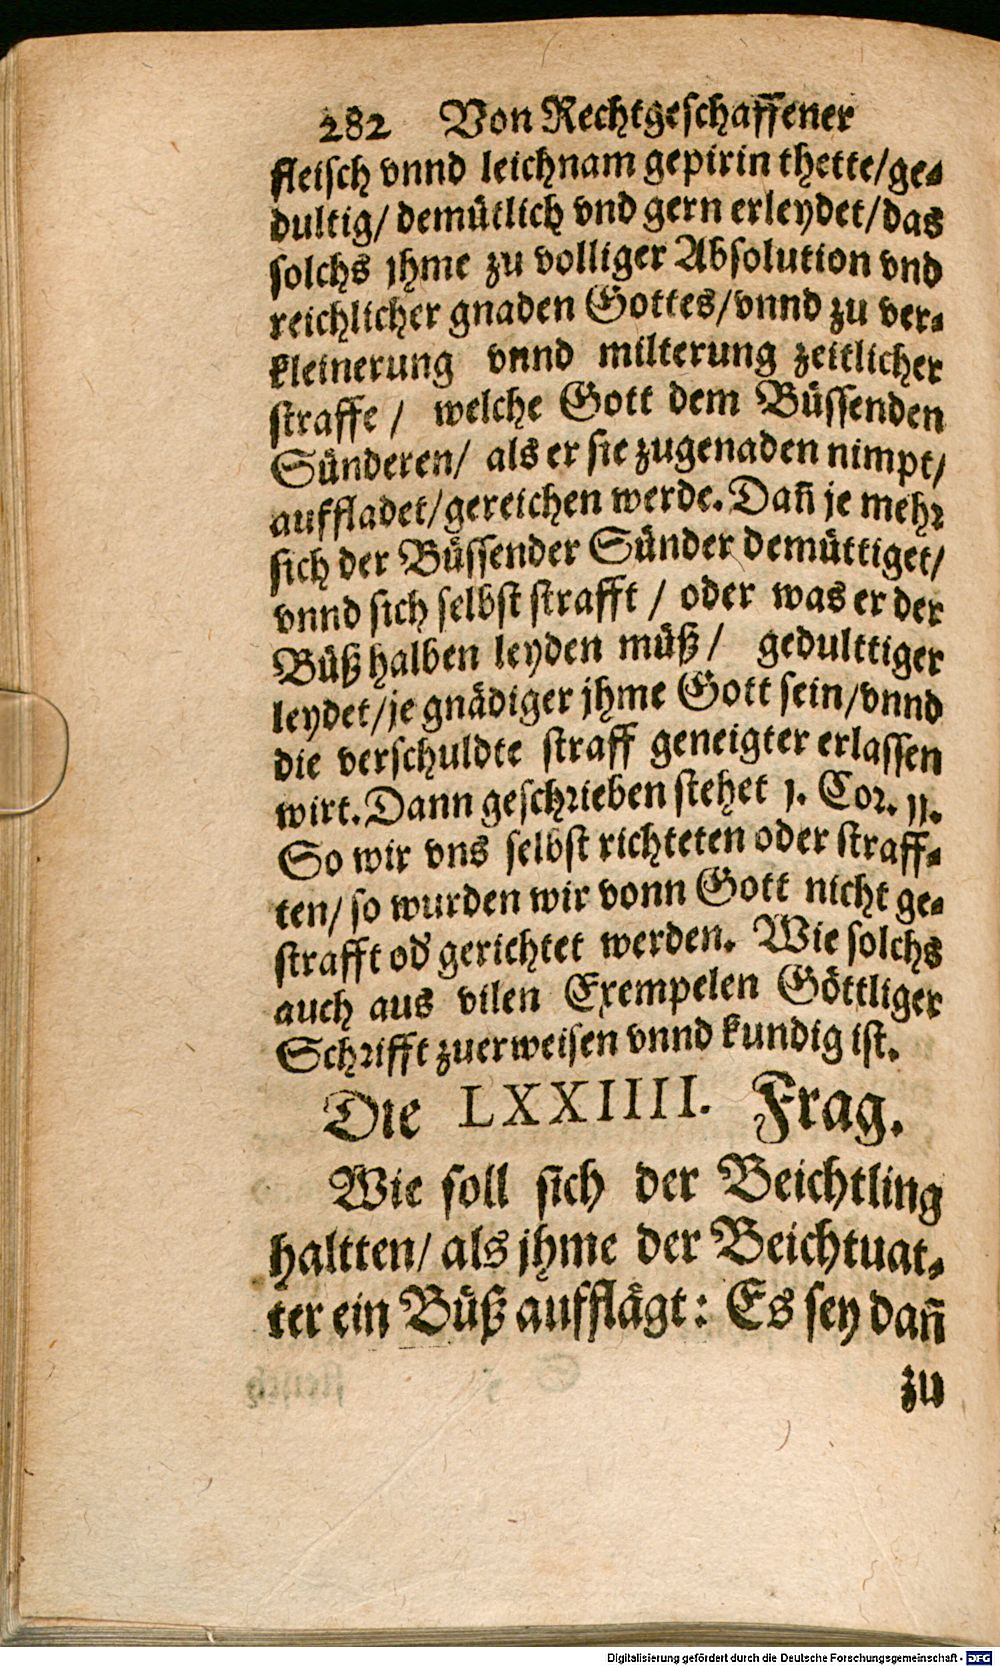 282 Von Rechtgeschaffener
fleisch vnnd leichnam gepirin thette/ge-
dultig/ demütlich vnd gern erleydet/das
solchs jhme zu volliger Absolution vnd
reichlicher gnaden Gottes/vnnd zu ver-
kleinerung vnnd milterung zeitlicher
straffe / welche Gott dem Büssenden
Sünderen/ als er sie zugenaden nimpt/
auffladet/gereichen werde. Dañ je mehr
sich der Büssender Sünder demüttiget/
vnnd sich selbst strafft / oder was er der
Büß halben leyden müß / gedulttiger
leydet/je gnädiger jhme Gott sein/vnnd
die verschuldte straff geneigter erlassen
wirt. Dann geschrieben stehet j. Cor. jj.
So wir vns selbst richteten oder straff-
ten/ so wurden wir vonn Gott nicht ge-
strafft od̕ gerichtet werden. Wie solchs
auch aus vilen Exempelen Göttliger
Schrifft zuerweisen vnnd kundig ist.
Die LXXIIII. Frag.
Wie soll sich der Beichtling
haltten/ als jhme der Beichtuat-
ter ein Büß aufflägt: Es sey dañ
zu
Digitalisierung gefördert durch die Deutsche Forschungsgemeinschaft - DFG